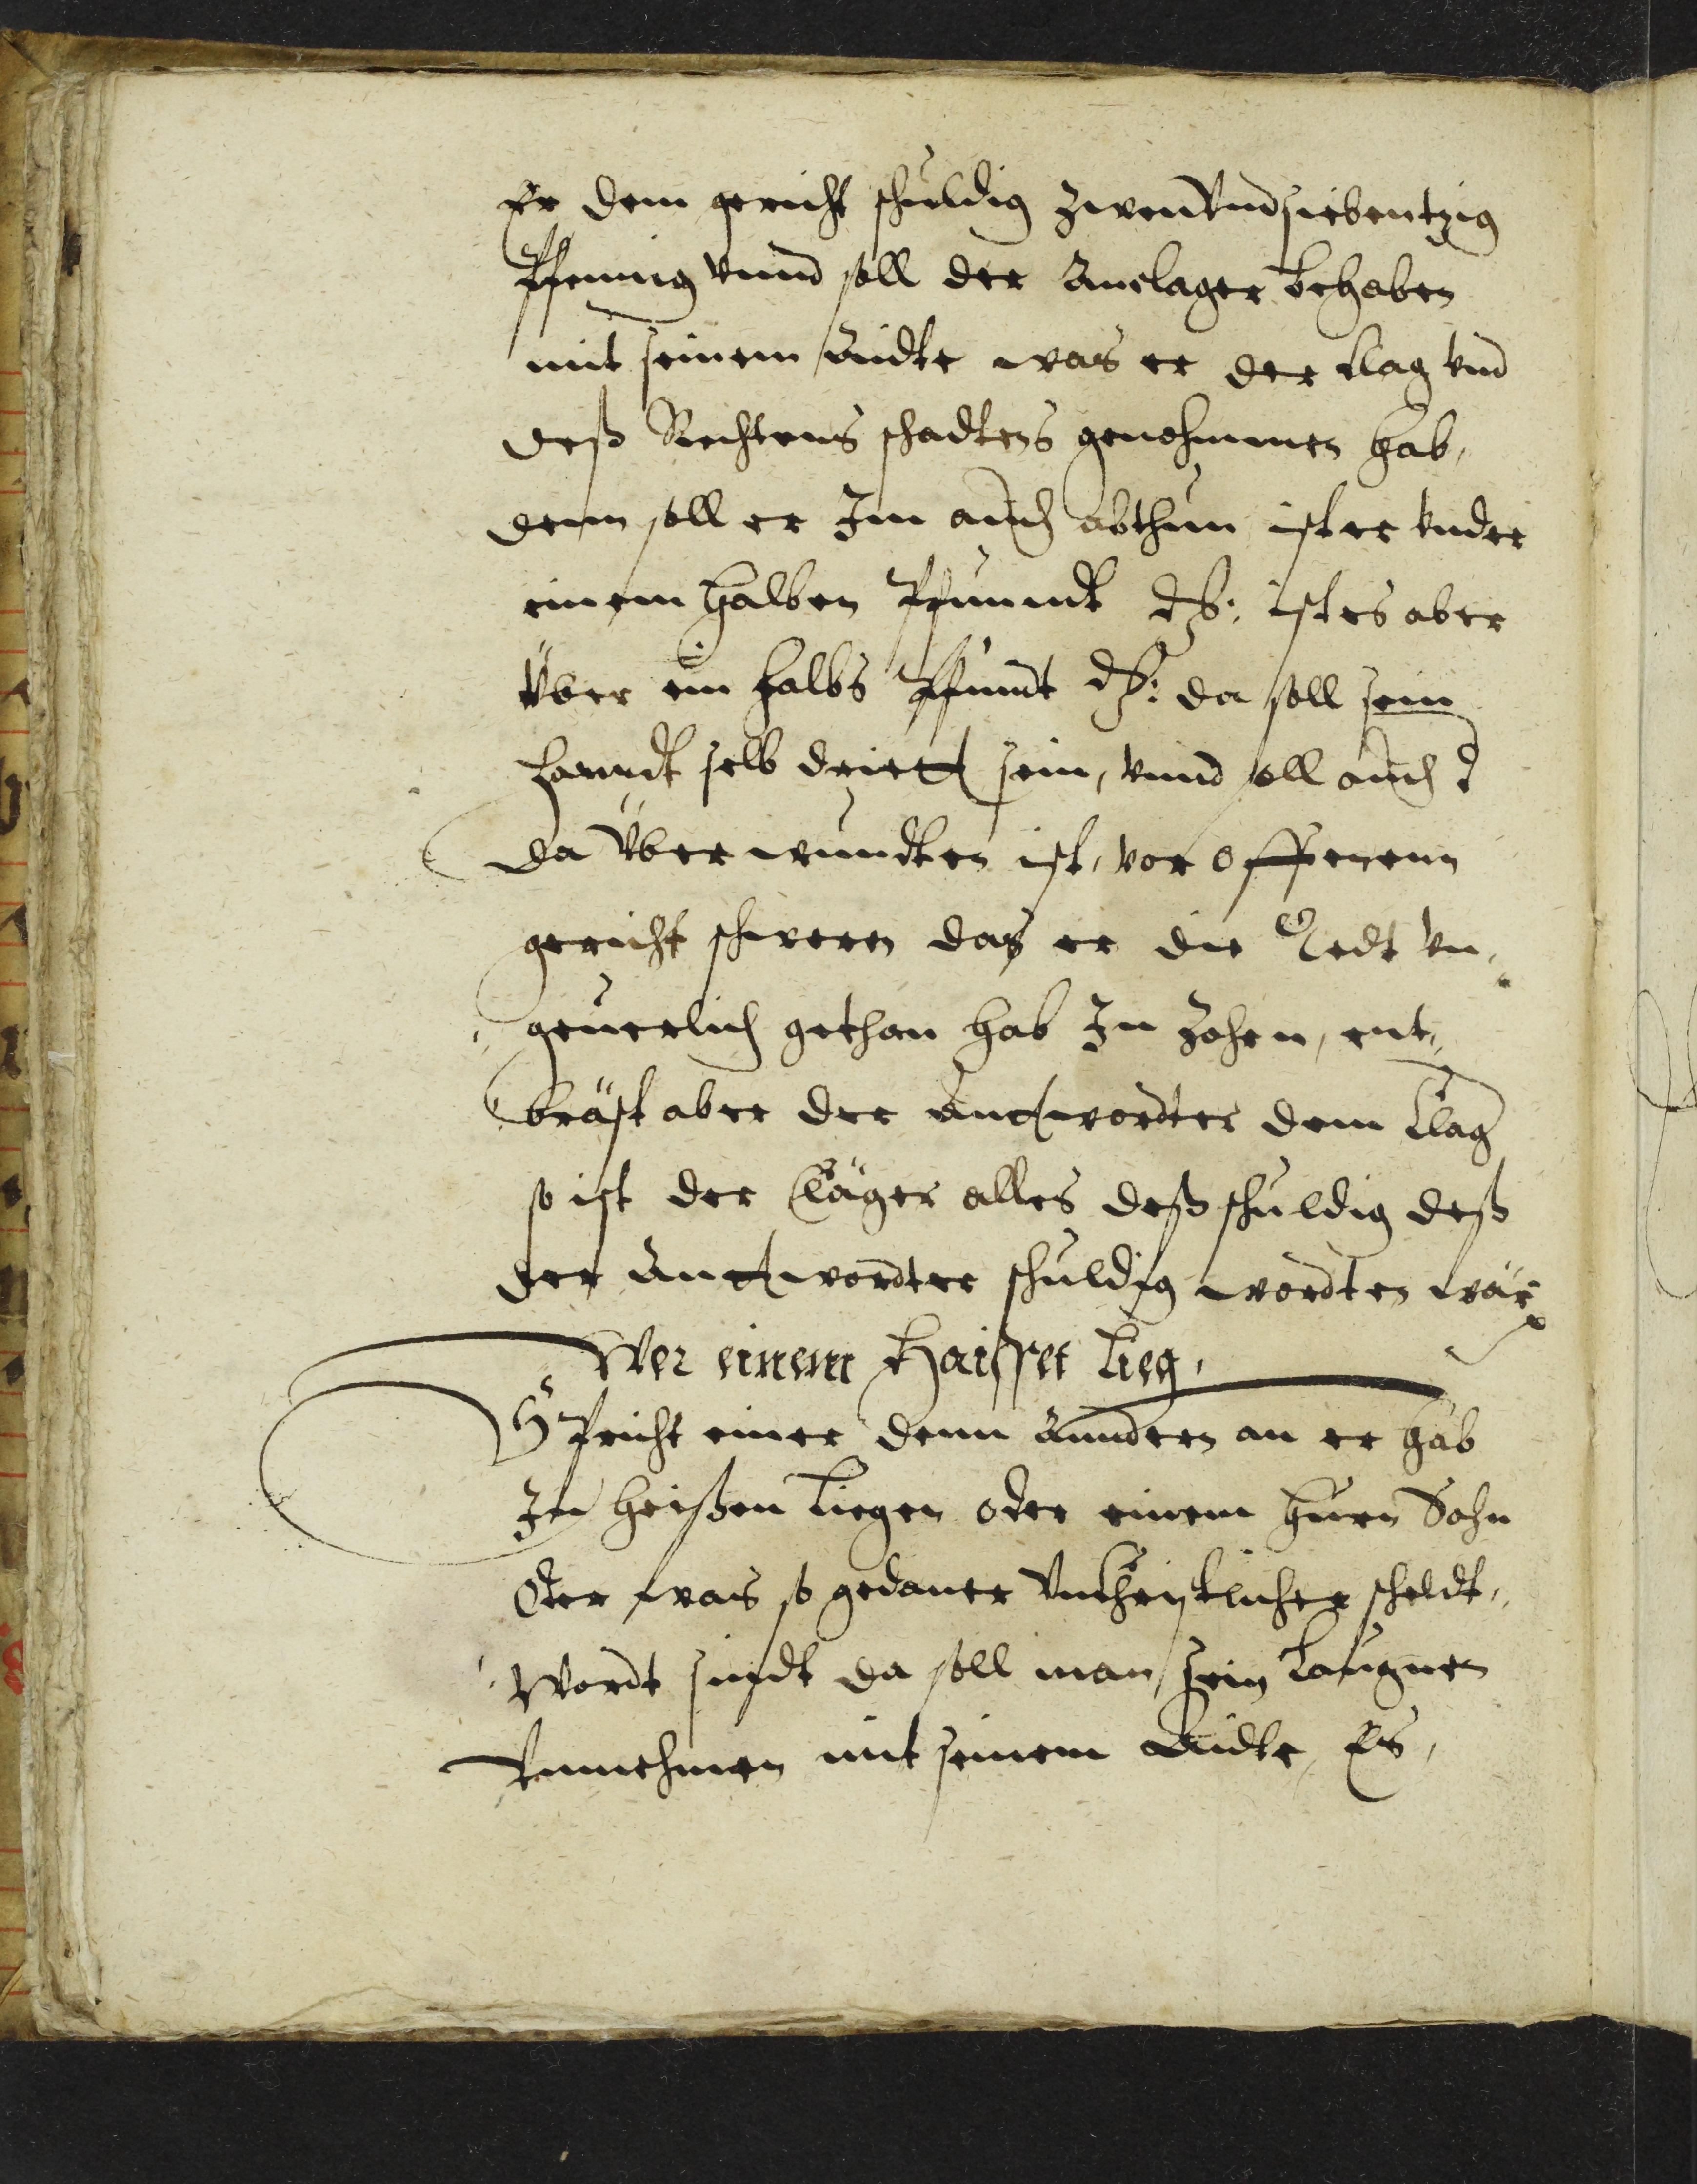 Er dem gericht schuldig zwenVndsiebentzig
Pfennig vnnd soll der Anclager behaben
mit seinem Aidte was er der Clag vnd
deß Rechtens schadtens genohmmen hab,
denn soll er Im auch abthun ist er vnder
einem halben Pfunndt dß: ist es aber
Vber ein halbs Pfundt dß: da soll sein
handt selb dritt sein, vnnd soll auch d
da Vberwundten ist, vor offenenn
gericht schweren das er die Redt vn,,
,,geuerlich gethan hab In Zohrn, ent,,
bräst aber der Anttwordter dem Clag
so ist der Cläger alles deß schuldig deß
der Anttwordter schuldig wordten wär
Wer einem Haisset Lieg,
Spricht einer denn Anndern an er hab
In heißen Liegen oder einem Hurn Sohn
Oder was so gedaner Vnchristlicher scheldt,,
Wordt sindt da soll man sein Laugnen
Vnnehmen mit seinem Aidte, Es,